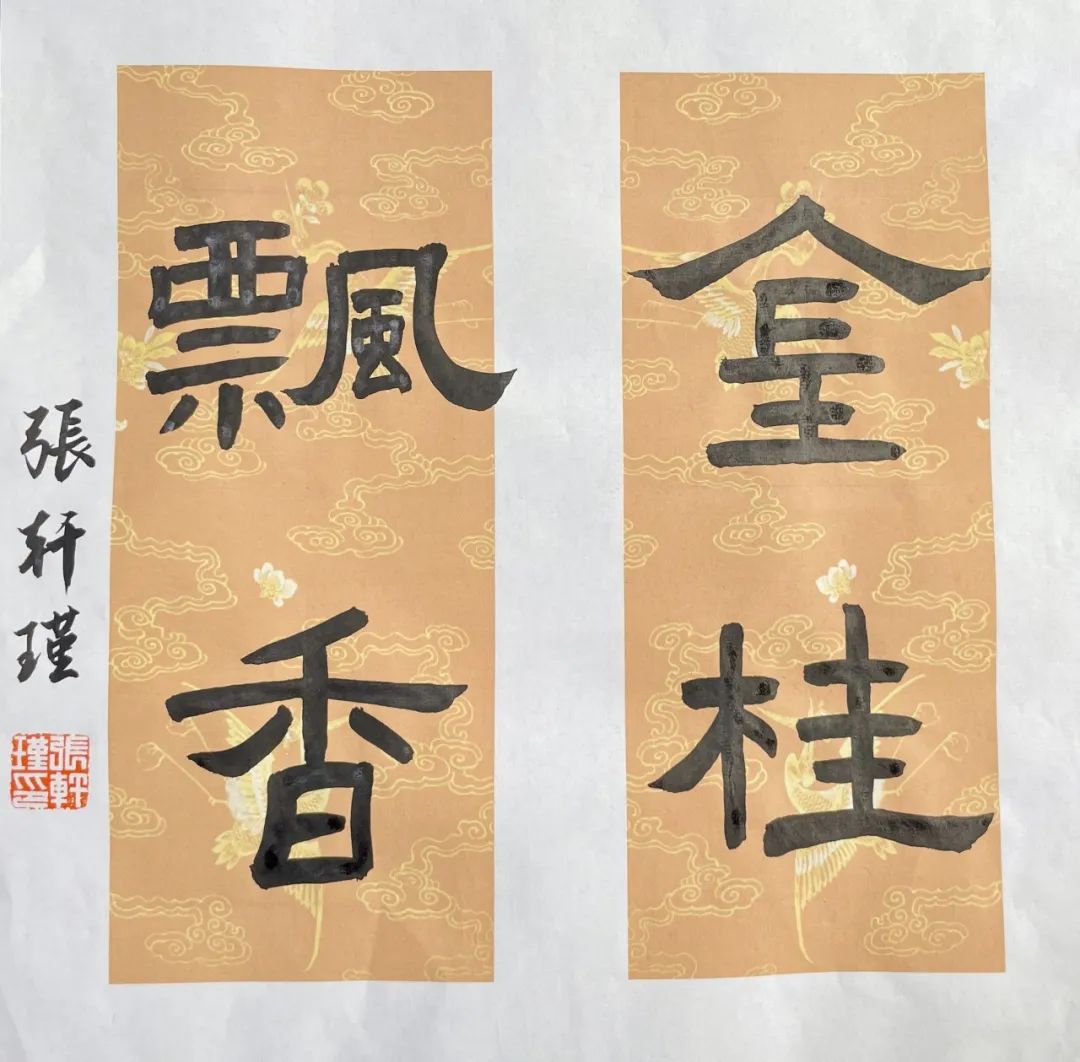 金桂
飄香
張轩瑾
張軒瑾印